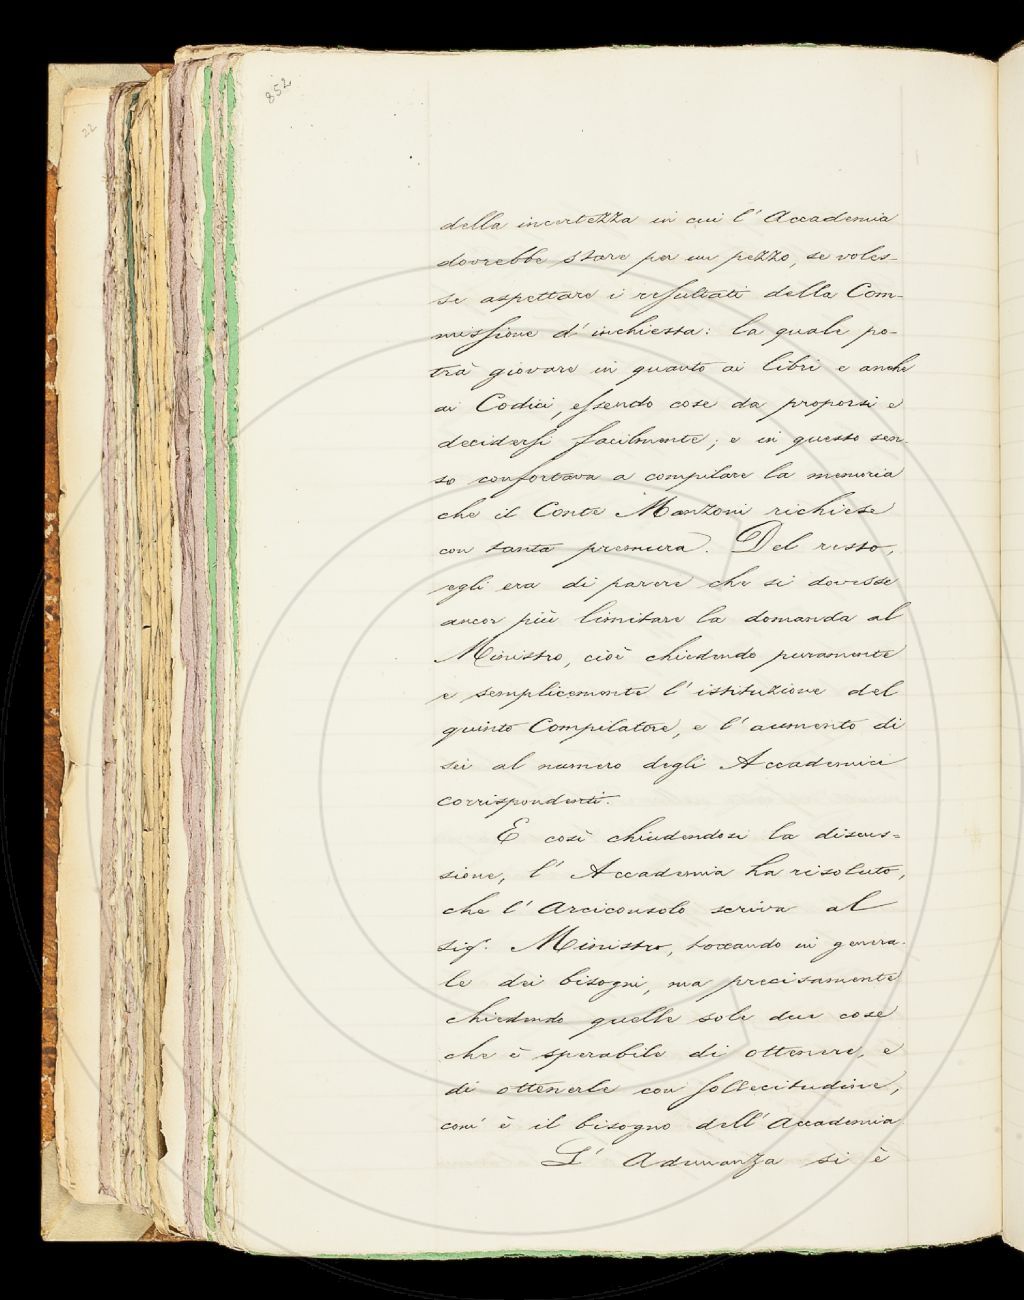 852
22
della incertezza in cui l' Accademia
dovrebbe stare per un pezzo, se voles-
se aspettare i resultati della Com-
missione d' inchiesta: la quale po-
trà giovare in quanto ai libri e anche
ai Codici, essendo cose da proporsi e
decidersi facilmente; e in questo sen-
so confortava a compilare la memoria
che il Conte Manzoni richiese
con tanta premura. Del resto,
egli era di parere che si dovesse
ancor più limitare la domanda al
Ministro, cioè chiedendo puramente
e semplicemente l' istituzione del
quinto Compilatore, e l' aumento di
sei al numero degli Accademici
corrispondenti.
E così chiudendosi la discus-
sione, l' Accademia ha risoluto,
che l' Arciconsolo scriva al
Sigr. Ministro, toccando in genera-
le dei bisogni, ma precisamente
chiedendo quelle sole due cose
che è sperabile di ottenere, e
di ottenerle con sollecitudine,
com' è il bisogno dell' Accademia
L' Adunanza si è